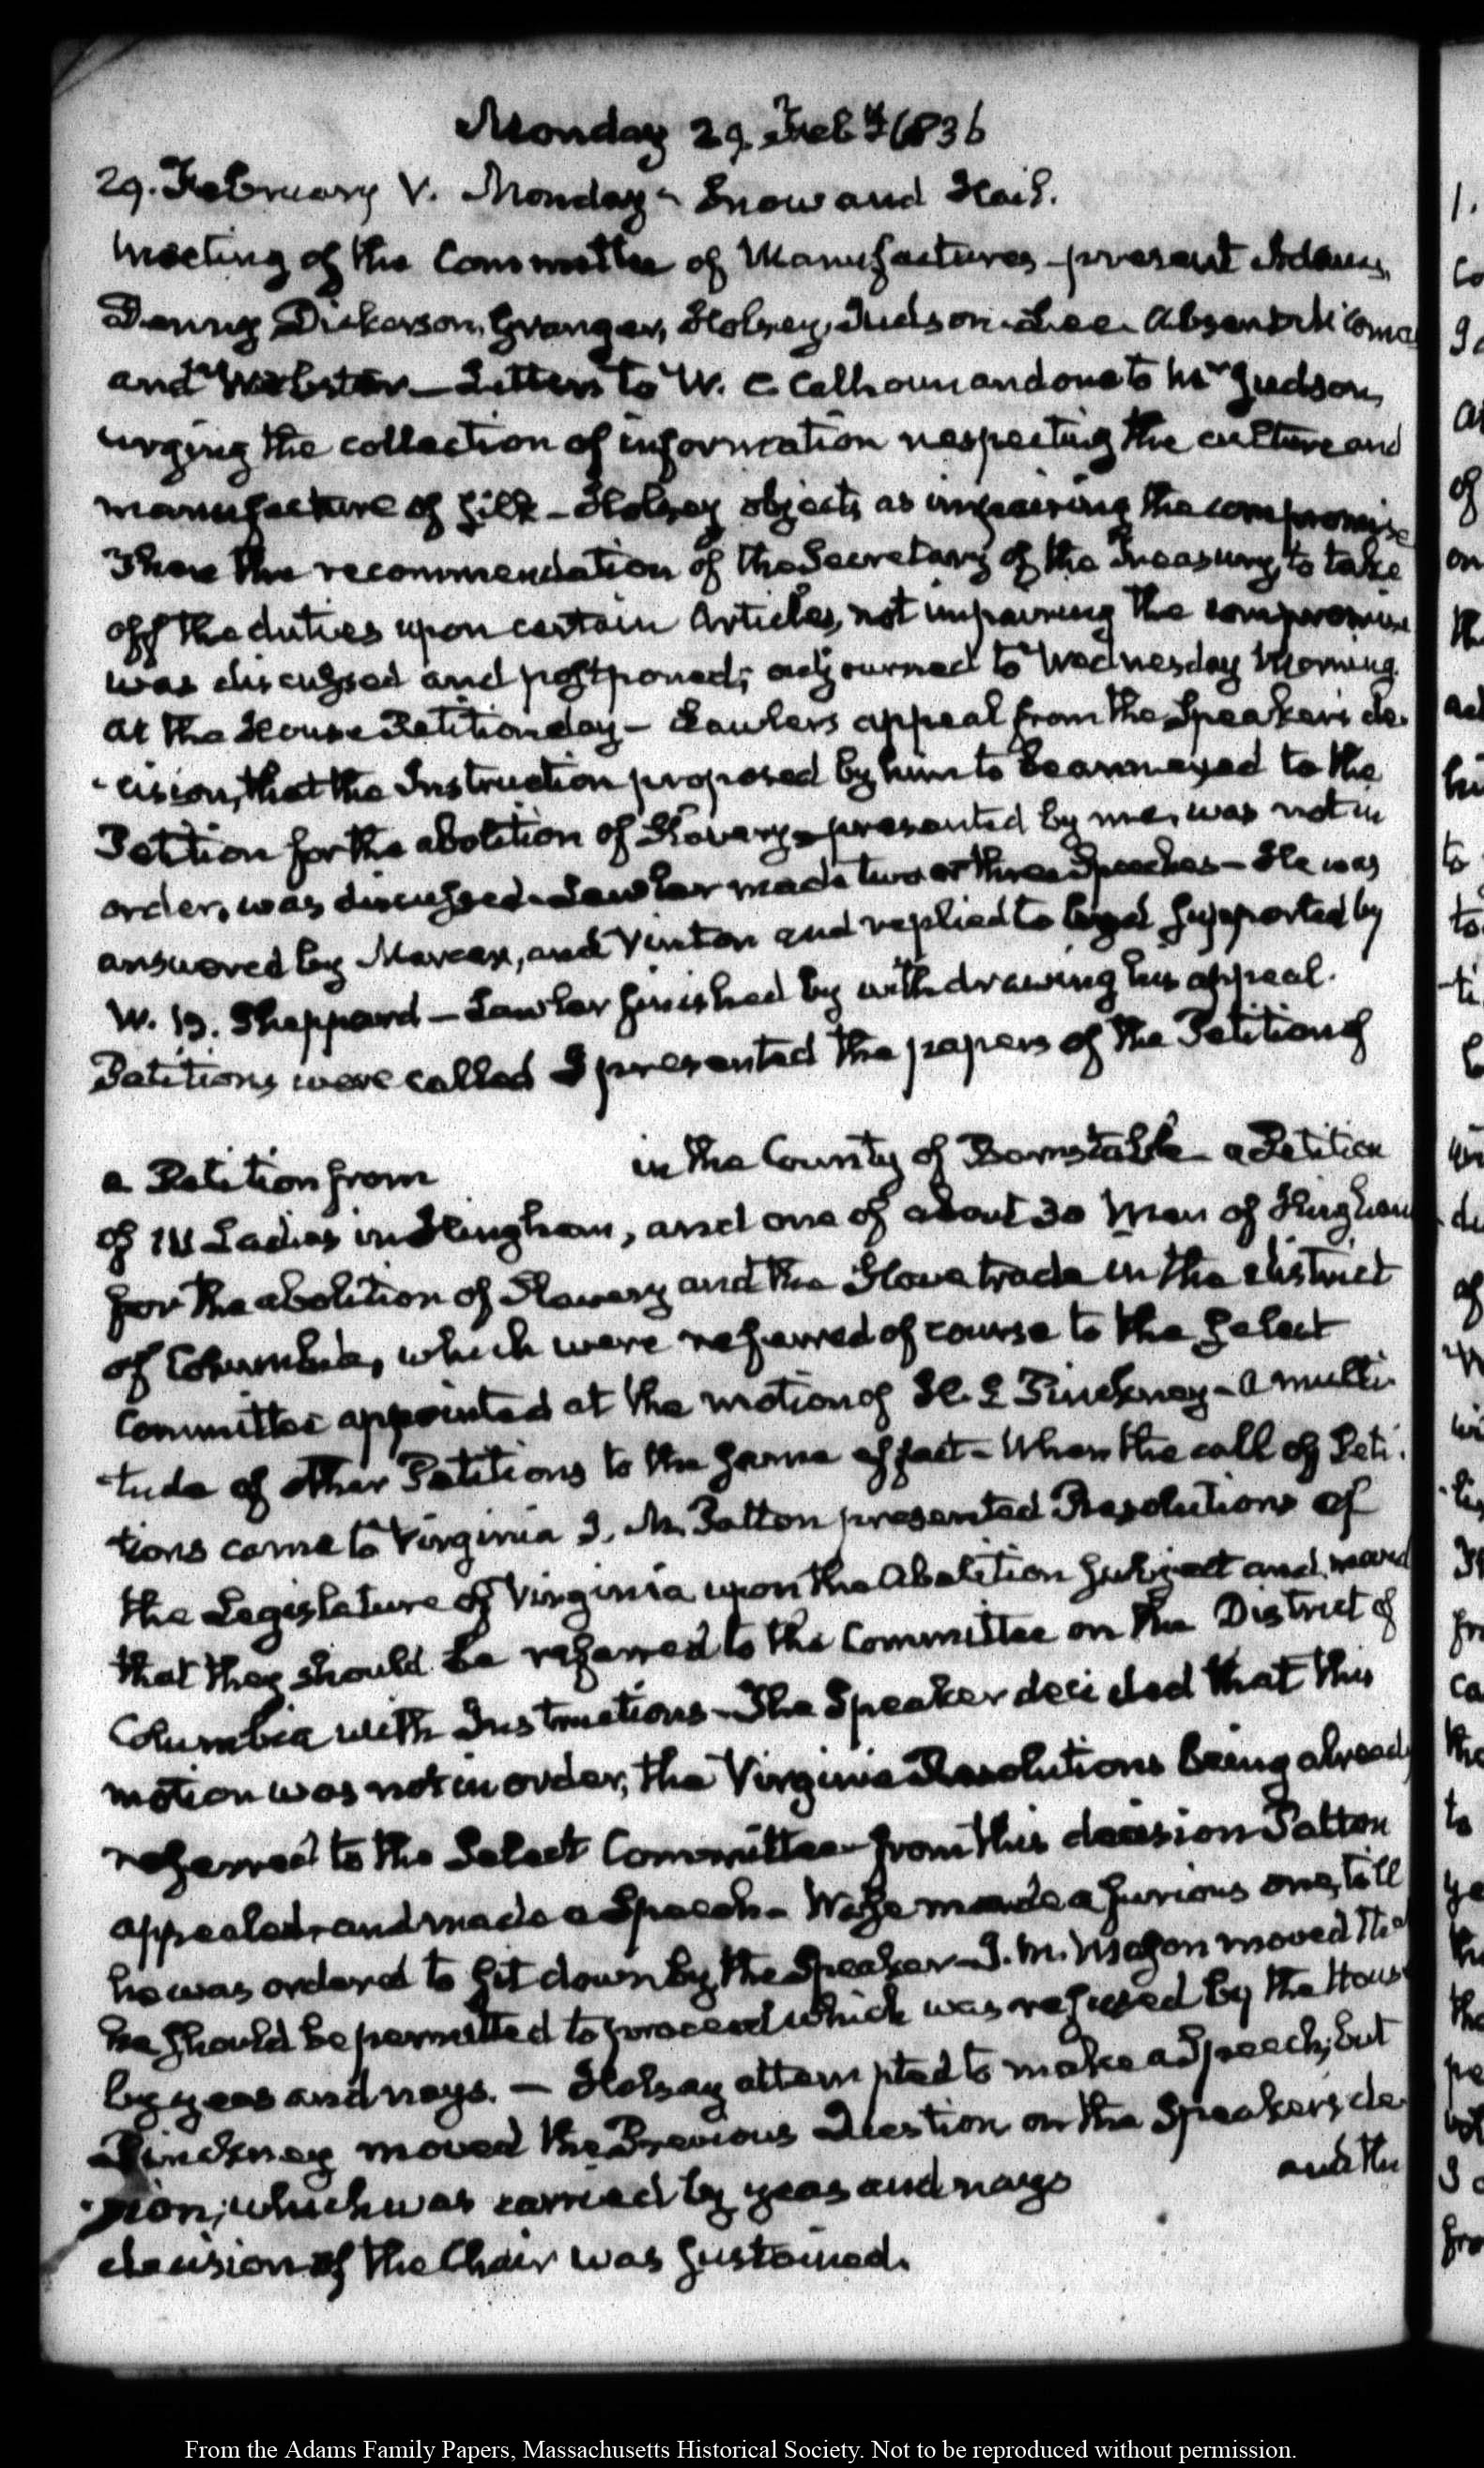 Monday 29. Feby. 1836
29. February V. Monday – Snow and Hail.
Meeting of the Committee of Manufactures – present Adams,
Denny Dickerson, Granger, Holsey, Judson. Lee. Absent
and Webster – Letters to W. C Calhoun and one to Mr Judson,
urging the collection of information respecting the culture and
manufacture of silk – Holsey objects as impairing the compromise
Then the recommendation of the Secretary of the Treasury, to take
off the duties upon certain Articles, not impairing the compromise
was discussed and postponed; adjourned to Wednesday Morning.
At the House Petition day – Lawlers appeal from the Speaker's de-
cision, that the Instruction proposed by him to be annexed to the
Petition for the abolition of Slavery, presented by me, was not in
order, was discussed. Lawler made two or three Speeches – He was
answered by Mercer, and Vinton and replied to and supported by
W. B. Sheppard – Lawler finished by withdrawing his appeal.
Petitions were called I presented the papers of the Petition of
a Petition from in the County of Barnstable a Petition
of Ladies in Hingham, and one of about 30 Men of Hingham
for the abolition of Slavery and the Slave trade in the district
of Columbia, which were referred of course to the Select
Committee appointed at the motion of H. L Pinckney – a multi-
tude of other Petitions to the same effect – When the call of Peti-
tions came to Virginia J. M. Patton presented Resolutions of
the Legislature of Virginia upon the Abolition subject and moved
that they should be referred to the Committee on the District of
Columbia with Instructions – The Speaker decided that this
motion was not in order, the Virginia Resolutions being already
referred to the Select Committee – from this decision Patton
appealed, and made a Speech – Wise made a furious one, till
he was ordered to sit down by the Speaker – J. M. Mason moved that
he should be permitted to proceed which was refused by the House
by yeas and nays. – Holsey attempted to make a Speech; but
Pinckney moved the Previous Question on the Speaker's de-
sion; which was carried by yeas and nays and the
decision of the Chair was sustained.
From the Adams Family Papers, Massachusetts Historical Society. Not to be reproduced without permission.